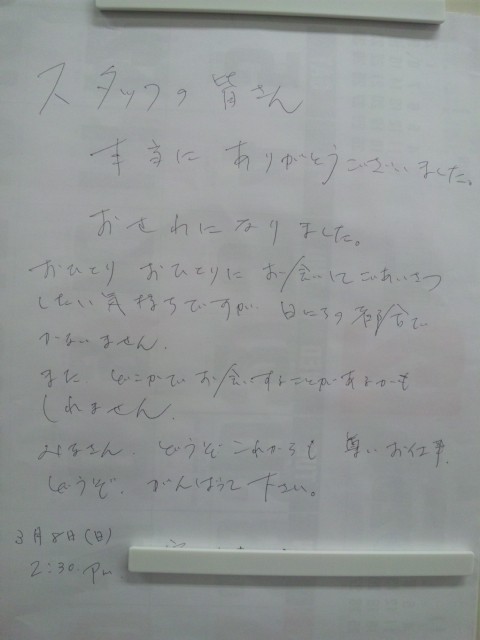 スタッフの皆さん
本当に ありがとうございました。
おせわになりました。
おひとり おひとりに お会いしてごあいさつ
したい気持ちですが、日にちの都合で
かないません。
また どこかでお会いすることがあるかも
しれません。
みなさん、どうぞこれからも 尊いお仕事、
どうぞ、がんばって下さい。
3月8日(日)
2:30. Pm